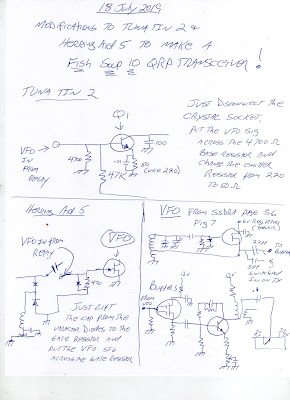 18 July 2019
Modifications to Tuna Tin 2 &
Herring Aid 5 to make a
Fish Soup 10 QRP Transceiver!
Tuna Tin 2
Q1
Just Disconnect the
Crystal Socket.
Put the VFO sig
across the 4700 Ω
Base Resistor and
Change the emitter
Resistor from 220
to 10 Ω
VFO
In
From
Relay
470
47K
.01
10
(was 220)
100
Herring Aid 5
VFO In From
Relay
VFO
470
Just Lift
the cap from the
Varactor Diodes to the
Gate Resistor and
Put the VFO sig
across the Gate Resistor
VFO From SSDRA Page 36
Fig 7
6V Regulated
(Zener)
To
Buffers
SPOT
Switched
In on TX
Buffers
From
VFO